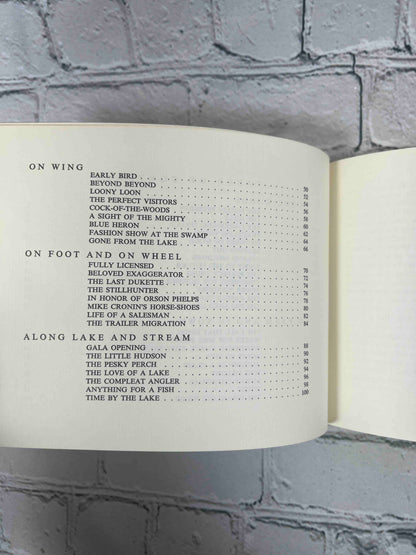 ON WING
EARLY BIRD . . . . . . . . . . . . . . . . . . . . 50
BEYOND BEYOND . . . . . . . . . . . . . . . . . . . . 52
LOONY LOON . . . . . . . . . . . . . . . . . . . . 54
THE PERFECT VISITORS . . . . . . . . . . . . . . . . . . . . 56
COCK-OF-THE-WOODS . . . . . . . . . . . . . . . . . . . . 58
A SIGHT OF THE MIGHTY . . . . . . . . . . . . . . . . . . . . 60
BLUE HERON . . . . . . . . . . . . . . . . . . . . 62
FASHION SHOW AT THE SWAMP . . . . . . . . . . . . . . . . . . . . 64
GONE FROM THE LAKE . . . . . . . . . . . . . . . . . . . . 66
ON FOOT AND ON WHEEL
FULLY LICENSED . . . . . . . . . . . . . . . . . . . . 70
BELOVED EXAGGERATOR . . . . . . . . . . . . . . . . . . . . 72
THE LAST DUKETTE . . . . . . . . . . . . . . . . . . . . 74
THE STILLHUNTER . . . . . . . . . . . . . . . . . . . . 76
IN HONOR OF ORSON PHELPS . . . . . . . . . . . . . . . . . . . . 78
MIKE CRONIN'S HORSE-SHOES . . . . . . . . . . . . . . . . . . . . 80
LIFE OF A SALESMAN . . . . . . . . . . . . . . . . . . . . 82
THE TRAILER MIGRATION . . . . . . . . . . . . . . . . . . . . 84
ALONG LAKE AND STREAM
GALA OPENING . . . . . . . . . . . . . . . . . . . . 88
THE LITTLE HUDSON . . . . . . . . . . . . . . . . . . . . 90
THE PESKY PERCH . . . . . . . . . . . . . . . . . . . . 92
THE LOVE OF A LAKE . . . . . . . . . . . . . . . . . . . . 94
THE COMPLEAT ANGLER . . . . . . . . . . . . . . . . . . . . 96
ANYTHING FOR A FISH . . . . . . . . . . . . . . . . . . . . 98
TIME BY THE LAKE . . . . . . . . . . . . . . . . . . . . 100